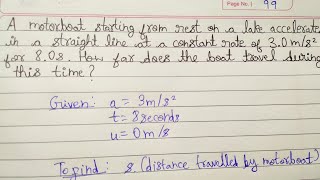 Page No. 99
A motorboat starting from rest on a lake accelerates
in a straight line at a constant rate of 3.0 m/s²
for 8.0s. How far does the boat travel during
this time?
Given: a = 3m/s²
t = 8 seconds
u = 0 m/s
To find: s (distance travelled by motorboat)